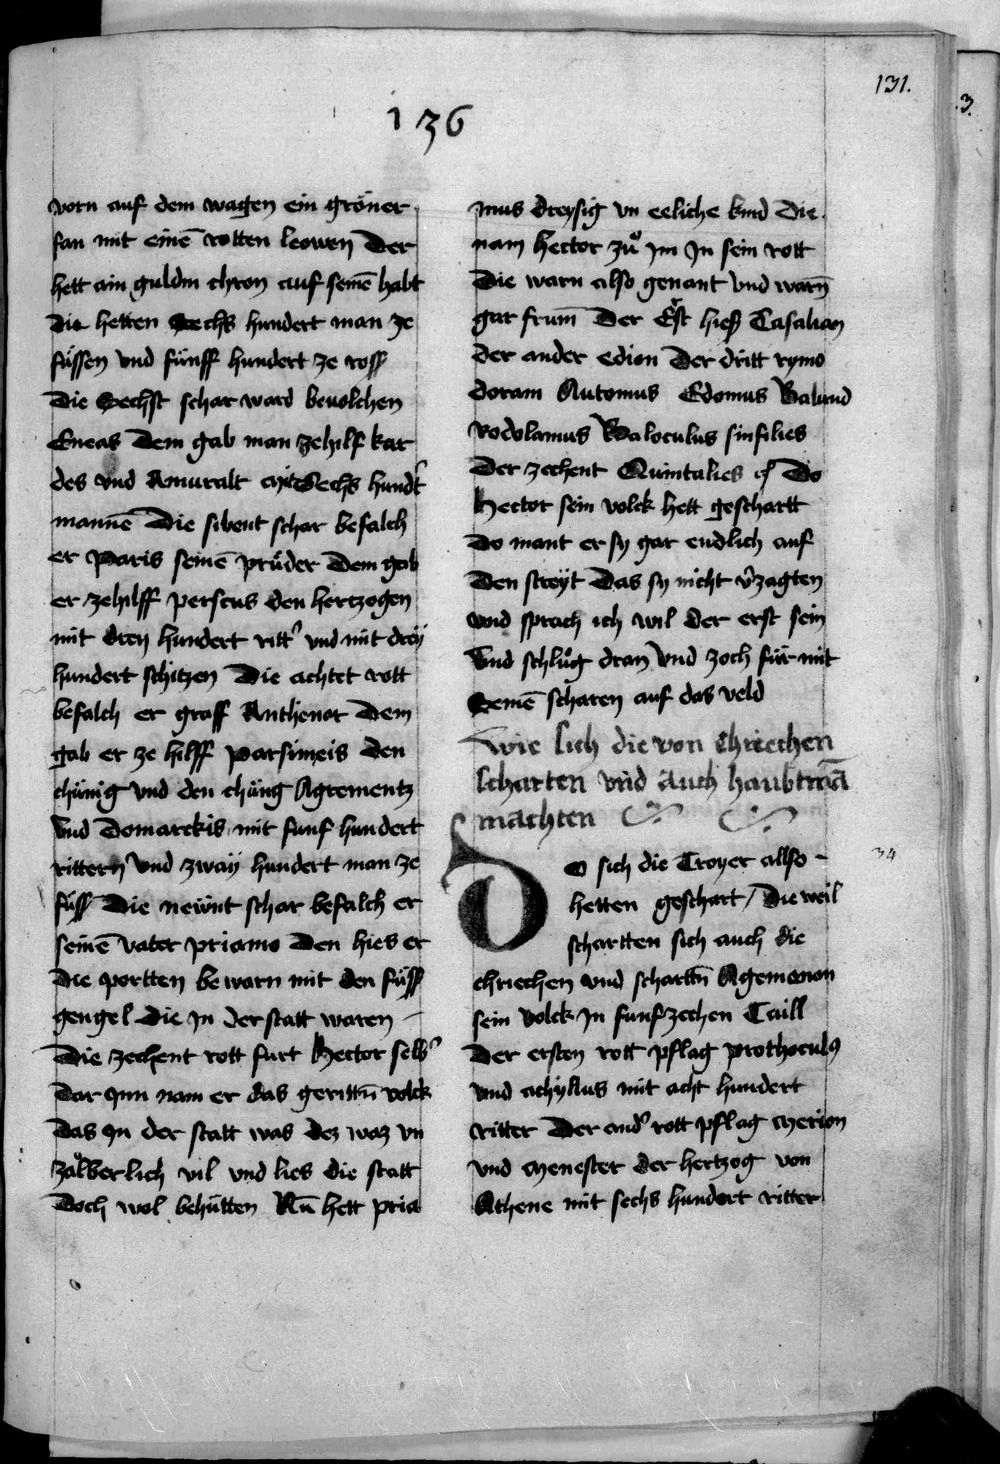 131.
136
vorn auf dem wagen ein gröner
fan mit einē rotten leowen Der
hett ain guldin chron auf seinē habt
die hetten Sechs hundert man ze
füssen vnd fünff hundert ze ross
die Sechst schar ward beuolchen
Eneas Dem gab man zehilf kar
des vnd Amuralt mit Sechs hundt
mannē Die sibent schar befalch
er Paris seinē prüder Dem gab
er zehilff perseus den hertzogen
mit dren hundert ritt vnd mit dreÿ
hundert schitzen Die achtet rott
befalch er graff Anthenor Dem
gab er ze hilff parsimeis den
chünig vnd den chüng Agrementz
vnd Domarckis mit funf hundert
rittern vnd zwaÿ hundert man ze
füss Die newnt schar befalch er
seinē vater priamo Den hies er
die portten bewarn mit den füss
gengel die Jn der statt waren
Die zechent rott furt Hector selb
Dar Jnn nam er das gerittn̄ volck
Das Jn der statt was dez waz vn
zalberlich vil vnd lies die statt
Doch wol behütten Nū hett pria
mus dreysig vn eeliche kind die
nam Hector zů jm Jn sein rott
Die warn also genant vnd warn̄
gar frum Der Erst hies Casalian
der ander edion Der dritt rymo
doram Automus Edomus Balund
rodolamus Baloculus sinfilies
Der zechent Quintalies Do
Hector sein volck hett geschartt
Do mant er sy gar endlich auf
Den streÿt Das sy nicht v̄zagten
vnd sprach ich wil der erst sein
Vnd schlůg dran vnd zoch für mit
Seinē scharen auf das veld
Wie sich die von chriechen
scharten vnd auch haubtmā
machten
34
DO sich die Troyer allso
hetten geschart / Die weil
schartten sich auch die
chriechen vnd schartn̄ Agemonon
sein volck Jn funfzechen Taill
Der ersten rott pflag prothoculꝯ
vnd achyllus mit acht hundert
ritter Der and rott pflag merion
vnd menester der hertzog von
Athene mit sechs hundert ritter